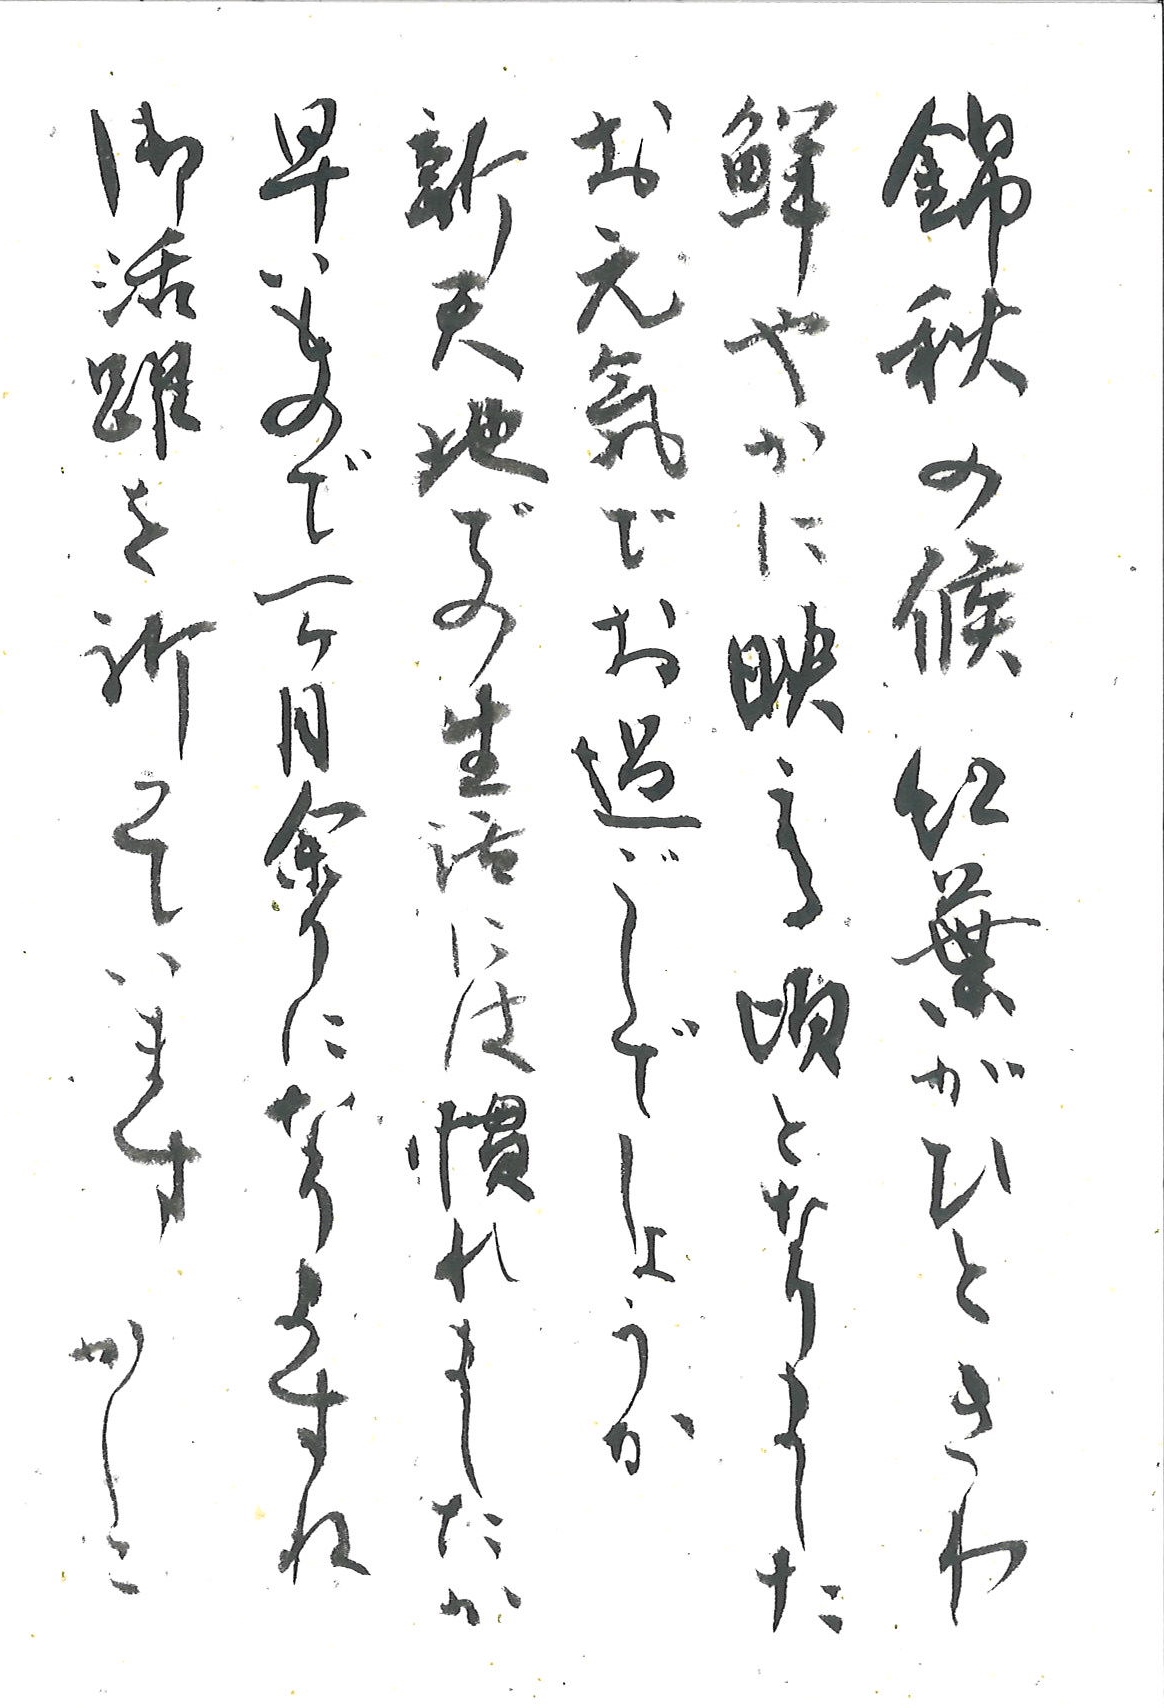 錦秋の候 紅葉がひときわ
鮮やかに映える頃となりました
お元気でお過ごしでしょうか
新天地での生活には慣れましたか
早いもので一ヶ月余りになりますね
御活躍を祈っています かしこ